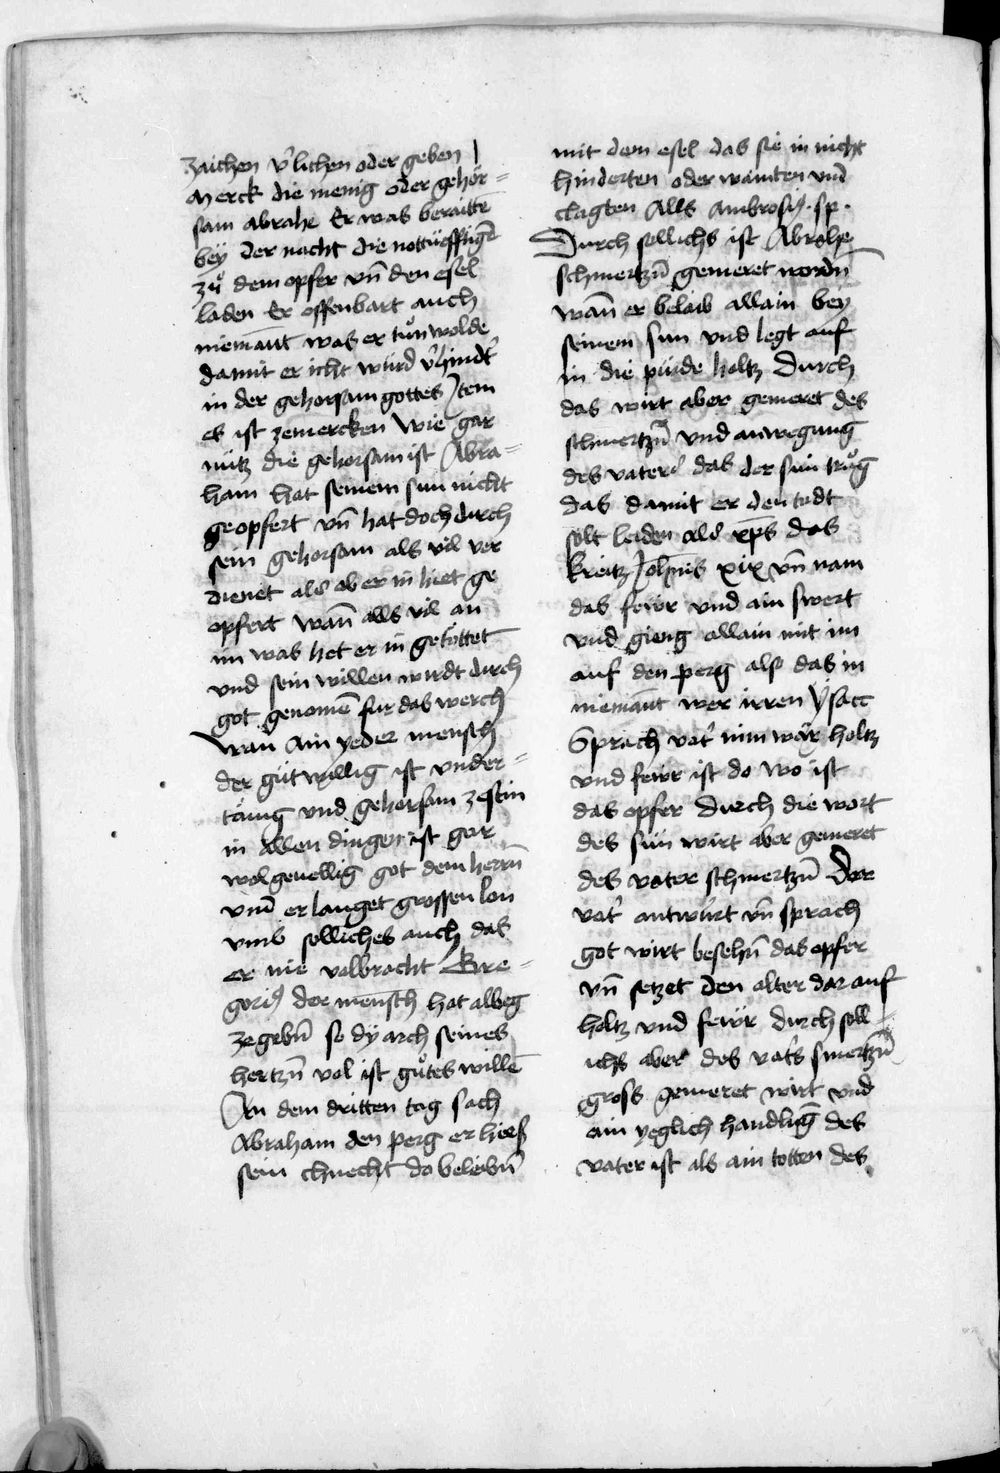 zaichen v̓lichen oder geben
Merck die menig oder gehor-
sam abrahe Er was beraitte
bey der nacht die nottu̇rfftigē
zů dem opfer vn̄ den esel
laden Er offenbart auch
niemant was er tůn wolde
damit er icht wurd v̓hindt̓
in der gehorsam gottes Jtem
es ist zemercken wie gar
nu̇tz die gehorsam ist Abra-
ham hat seinem sun nicht
geopfert vn̄ hat doch durch
sein gehorsam als vil ver
dienet als ob er in hiet ge
opfert wan̄ alls vil an
im was het er in geto̎ttet
vnd sein willen wurdt durch
got genomē fur das werch
Wan̄ Ain yeder mensch
der gu̇twillig ist vnder-
ta̎nig vnd gehorsam zesein
in allen dingen ist gar
wolgeuellig got dem herrn̄
vnd erlanget grossen lon
vmb solliches auch das
er nie volbracht Gre-
gori9 der mensch hat albeg
zegebn̄ so dy arch seines
hertzn̄ vol ist gůtes willē
An dem dritten tag sach
Abraham den perg er hiess
sein chnecht do beleibn̄
mit dem esel das sie in nicht
hinderten oder wainten vnd
clagten Alls Ambrosi9 . sp .
Durch sollichs ist Abrahe
schmertzn̄ gemeret wordn̄
wan̄ er belaib allain bey
seinem sun vnd legt auf
in die pu̇rde holtz Durch
das wirt aber gemeret des
schmertzn̄ vnd anwegung
des vaters das der sun trůg
das damit er den todt
solt leiden als xp̄s das
kreitz Joh̄nis xix vn̄ nam
das fewr vnd ain swert
vnd gieng allain mit im
auf den perg also das in
niemant wer irren ysacc
Sprach vat̓ nim war holtz
vnd fewr ist do wo ist
das opfer Durch die wort
des su̇n wirt aber gemeret
des vater schmertzn̄ Der
vat̓ antwu̇rt vn̄ sprach
got wirt besehn̄ das opfer
vn̄ setzet den alter dar auf
holtz vnd fewr durch soll-
ichs aber des vat̓s smertzn̄
gross gemeret wirt vnd
ain yeglich handlūg des
vater ist als ain totten des